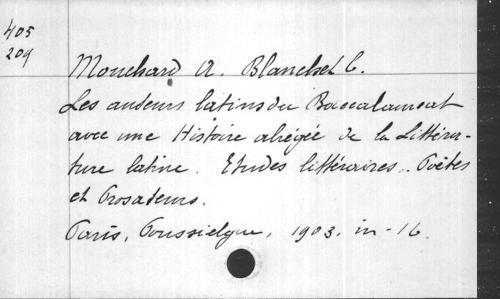 405
209
Mouchard A. Blanchet C.
Les auteurs latins du Baccalaureat
avec une Histoire abrégée de la Littéra-
ture latine. Etudes littéraires.. Poètes
et Prosateurs.
Paris, Poussielgue, 1903, in-16.